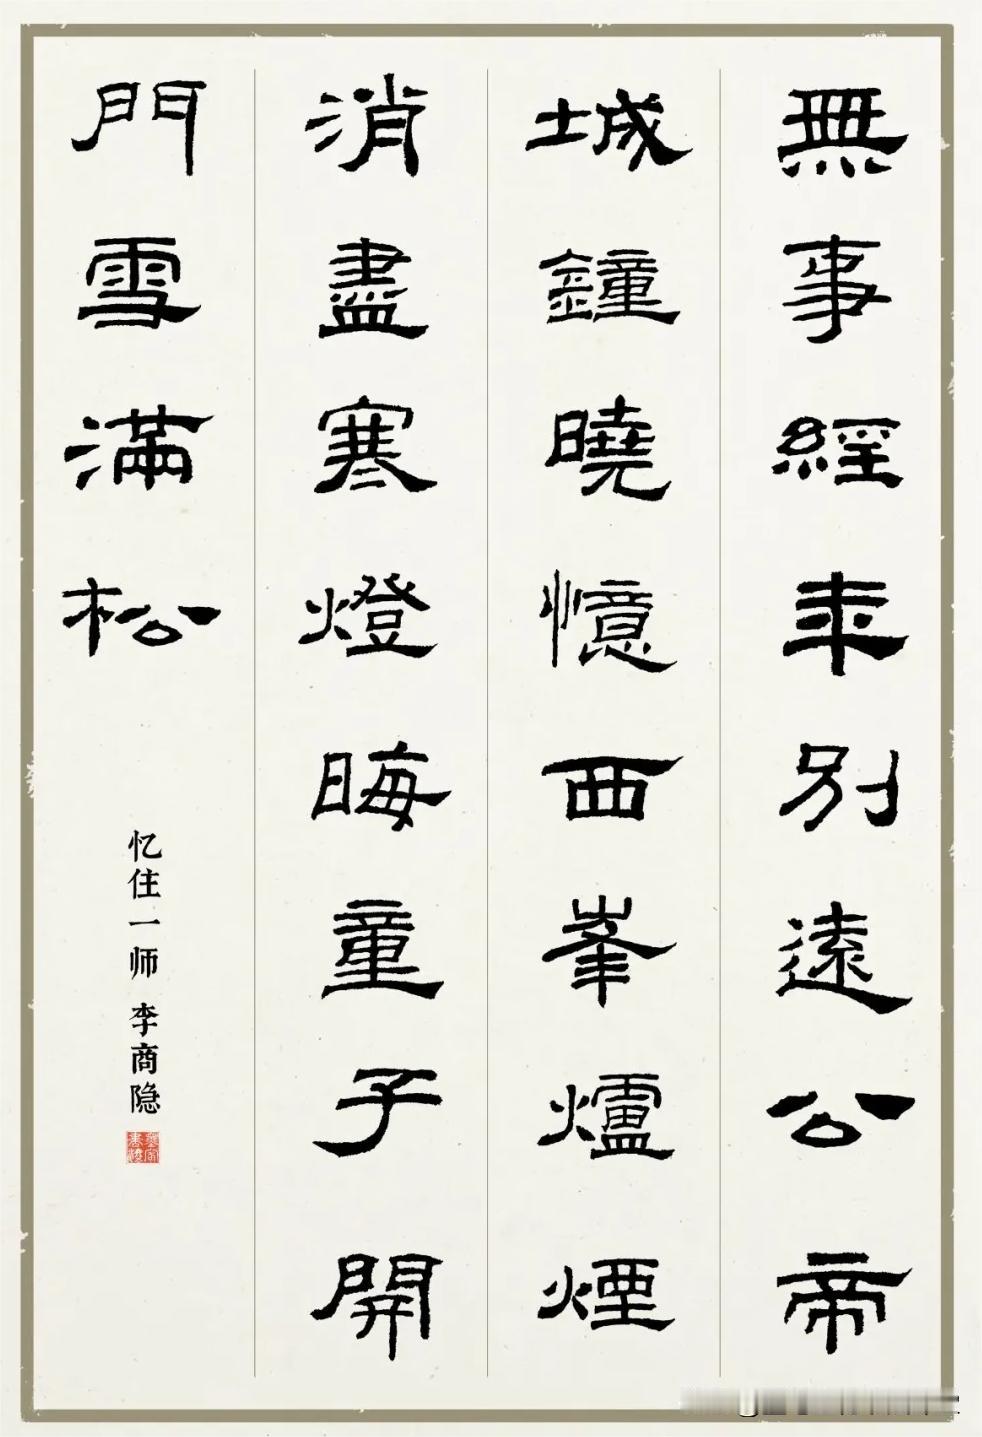 無事經年別遠公帝
城鐘曉憶西峯爐煙
消盡寒燈晦童子開
門雪滿松
忆住一师 李商隐